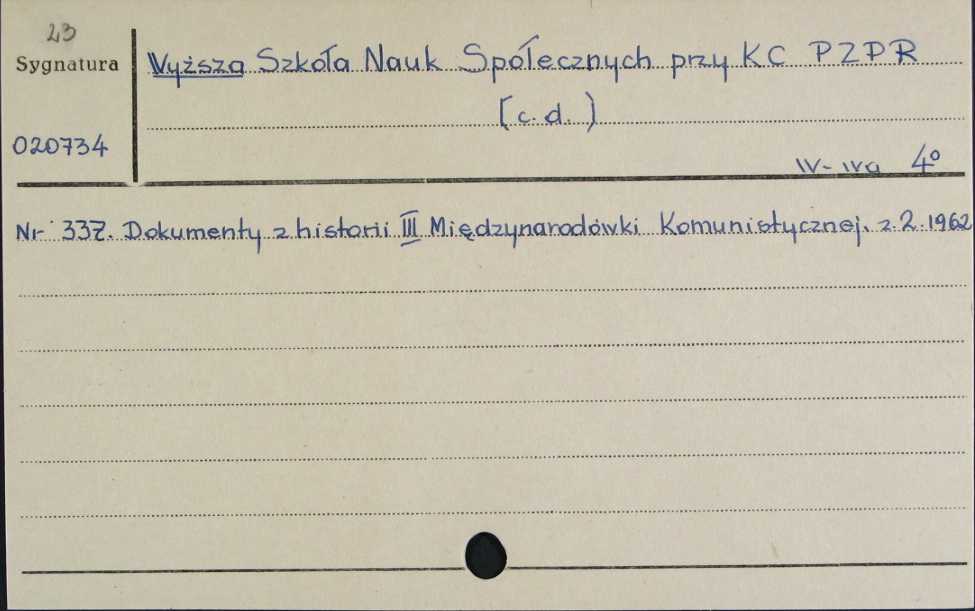 23
Sygnatura
Wyższa Szkoła Nauk Społecznych przy KC PZPR
(c.d.)
020734
W-wa 4°
Nr 337. Dokumenty z historii III Międzynarodówki Komunistycznej. z.2.1962